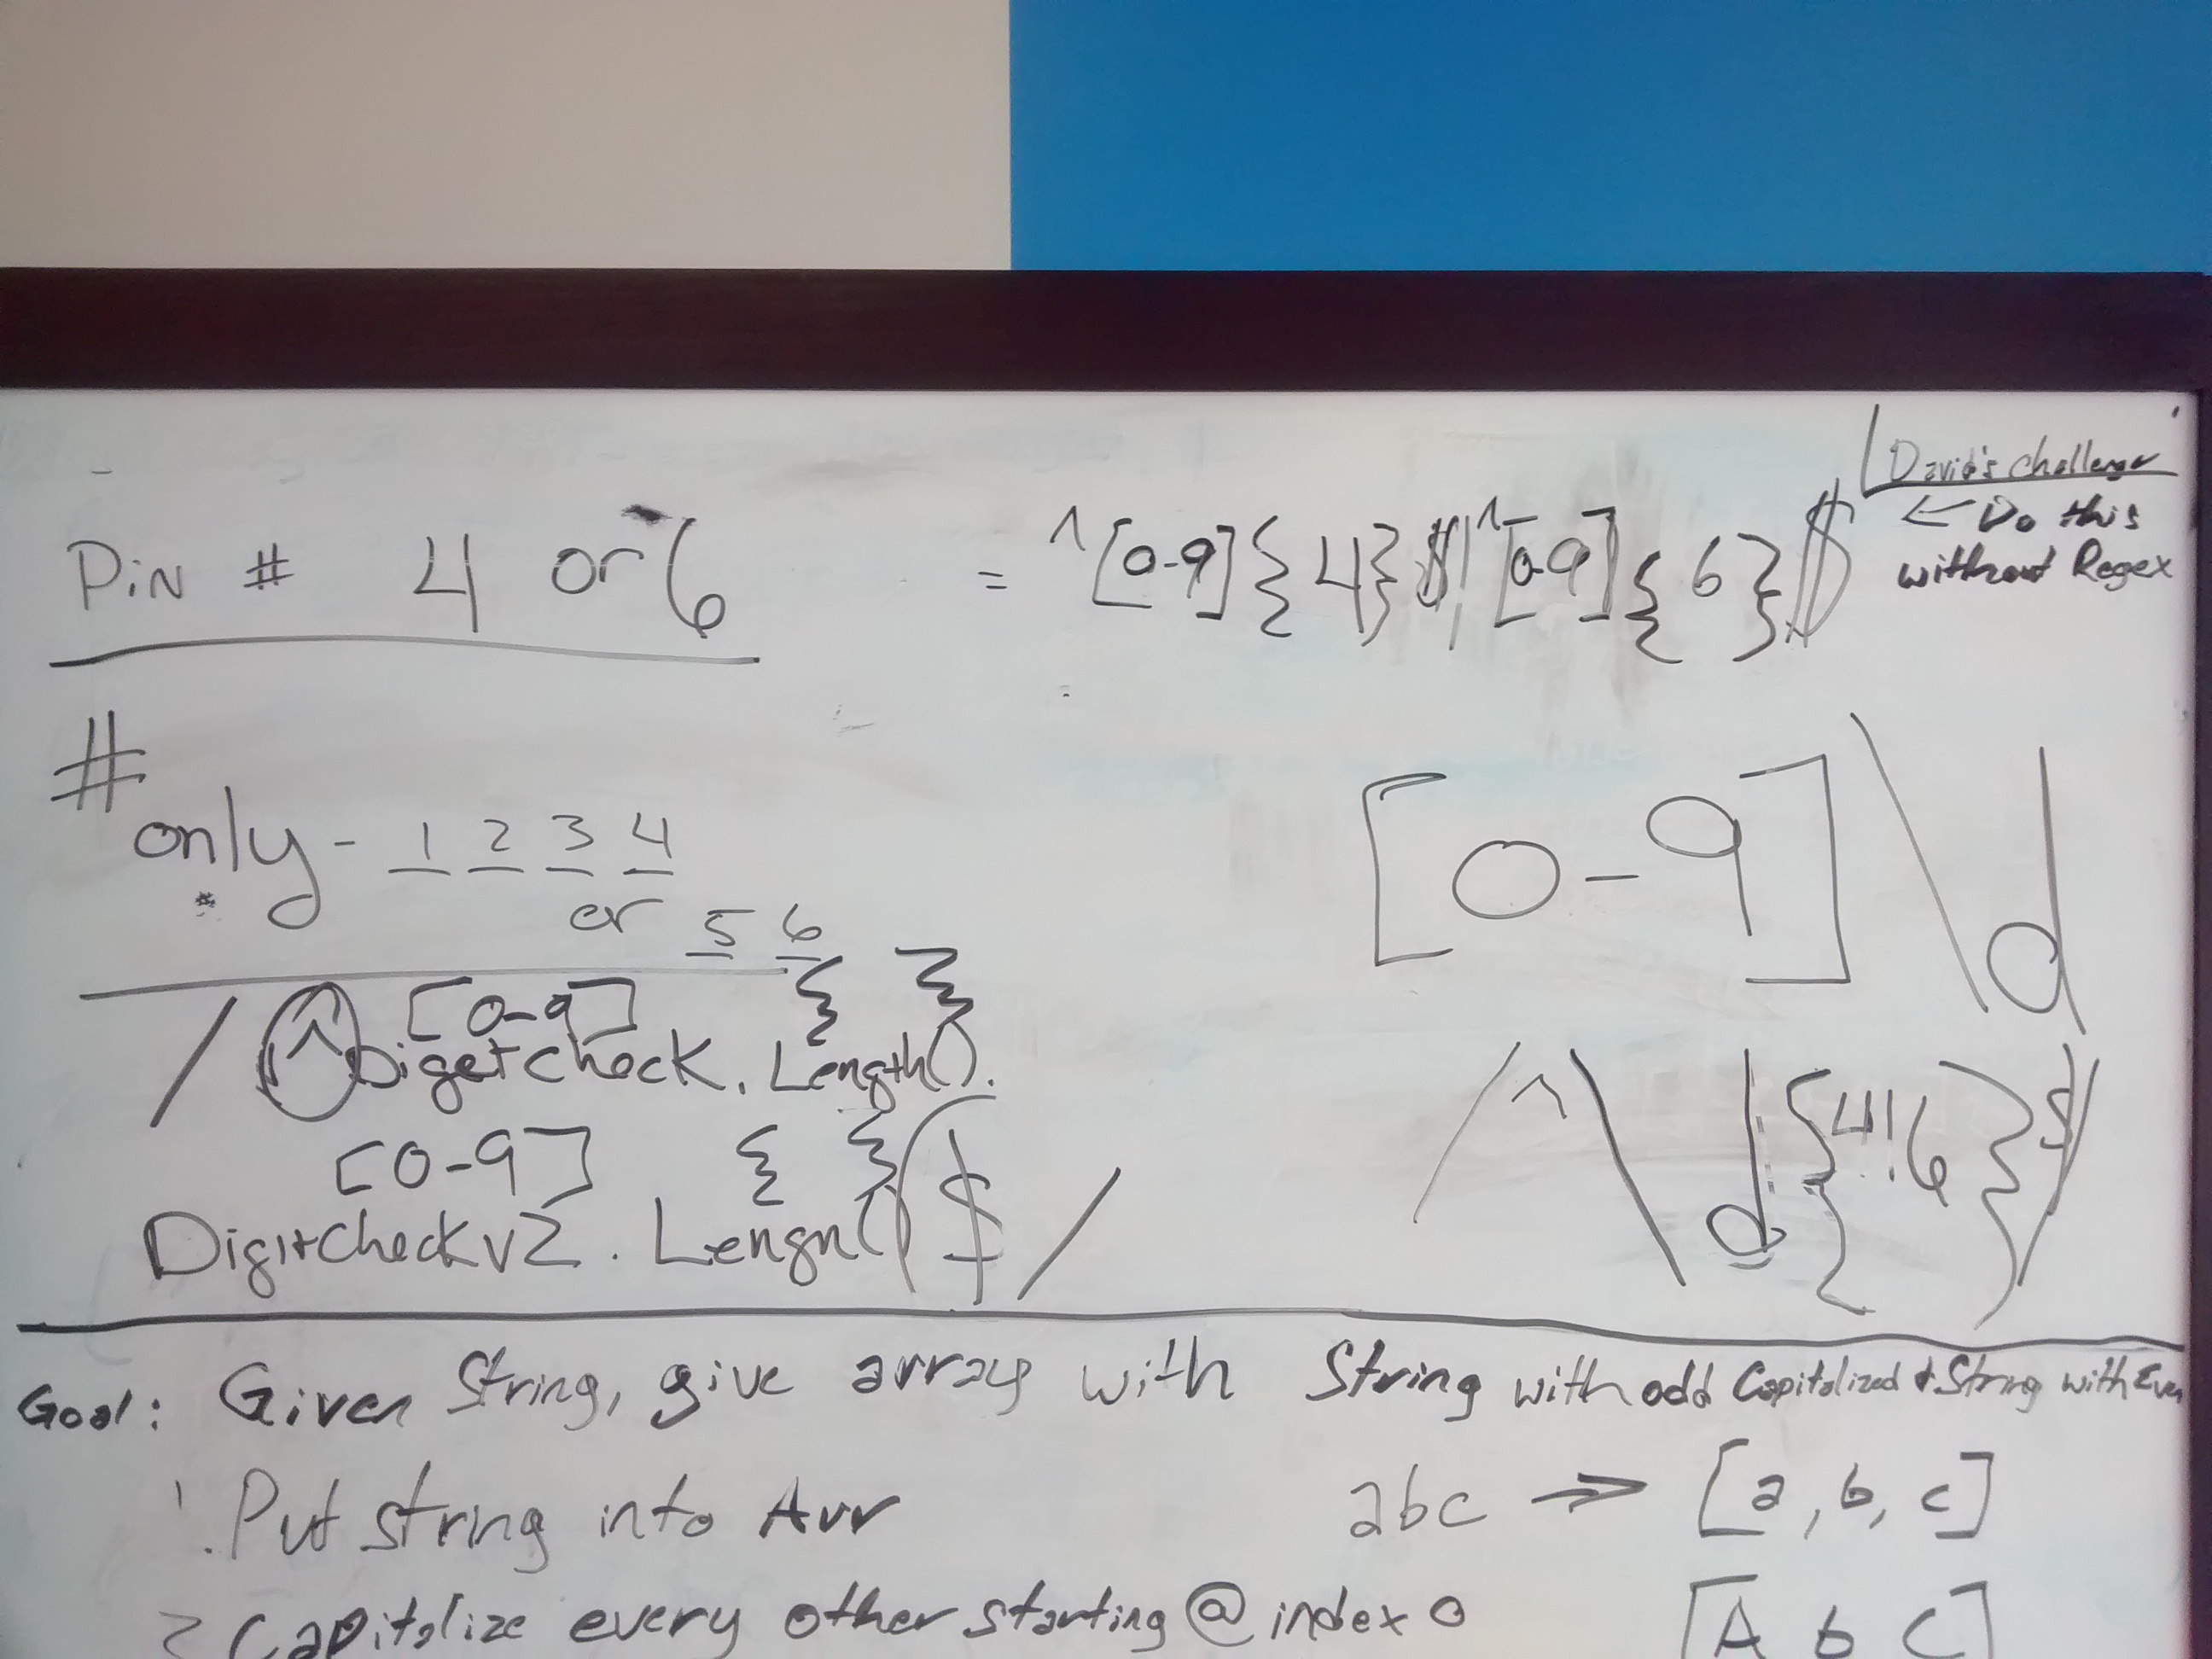 David's challenge
Pin # 4 or 6 = ^[0-9]{4}$|^[0-9]{6}$ ← Do this
without Regex
#
only - 1 2 3 4
or 5 6
[0-9] \d
[0-9] { }
/ ^ Digetcheck. Length().
/^\d{4|6}$/
[0-9] { }
Digitcheckv2. Lengn() $ /
Goal: Given String, give array with String with odd Capitalized & String with Even
1. Put string into Arr abc → [a, b, c]
2 Capitalize every other starting @ index 0 [A b C]